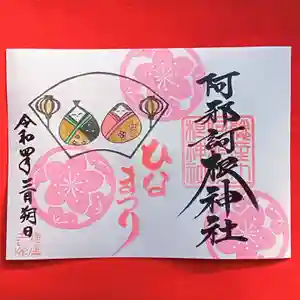 阿邪訶根神社
ひな
まつり
令和四年三月朔日